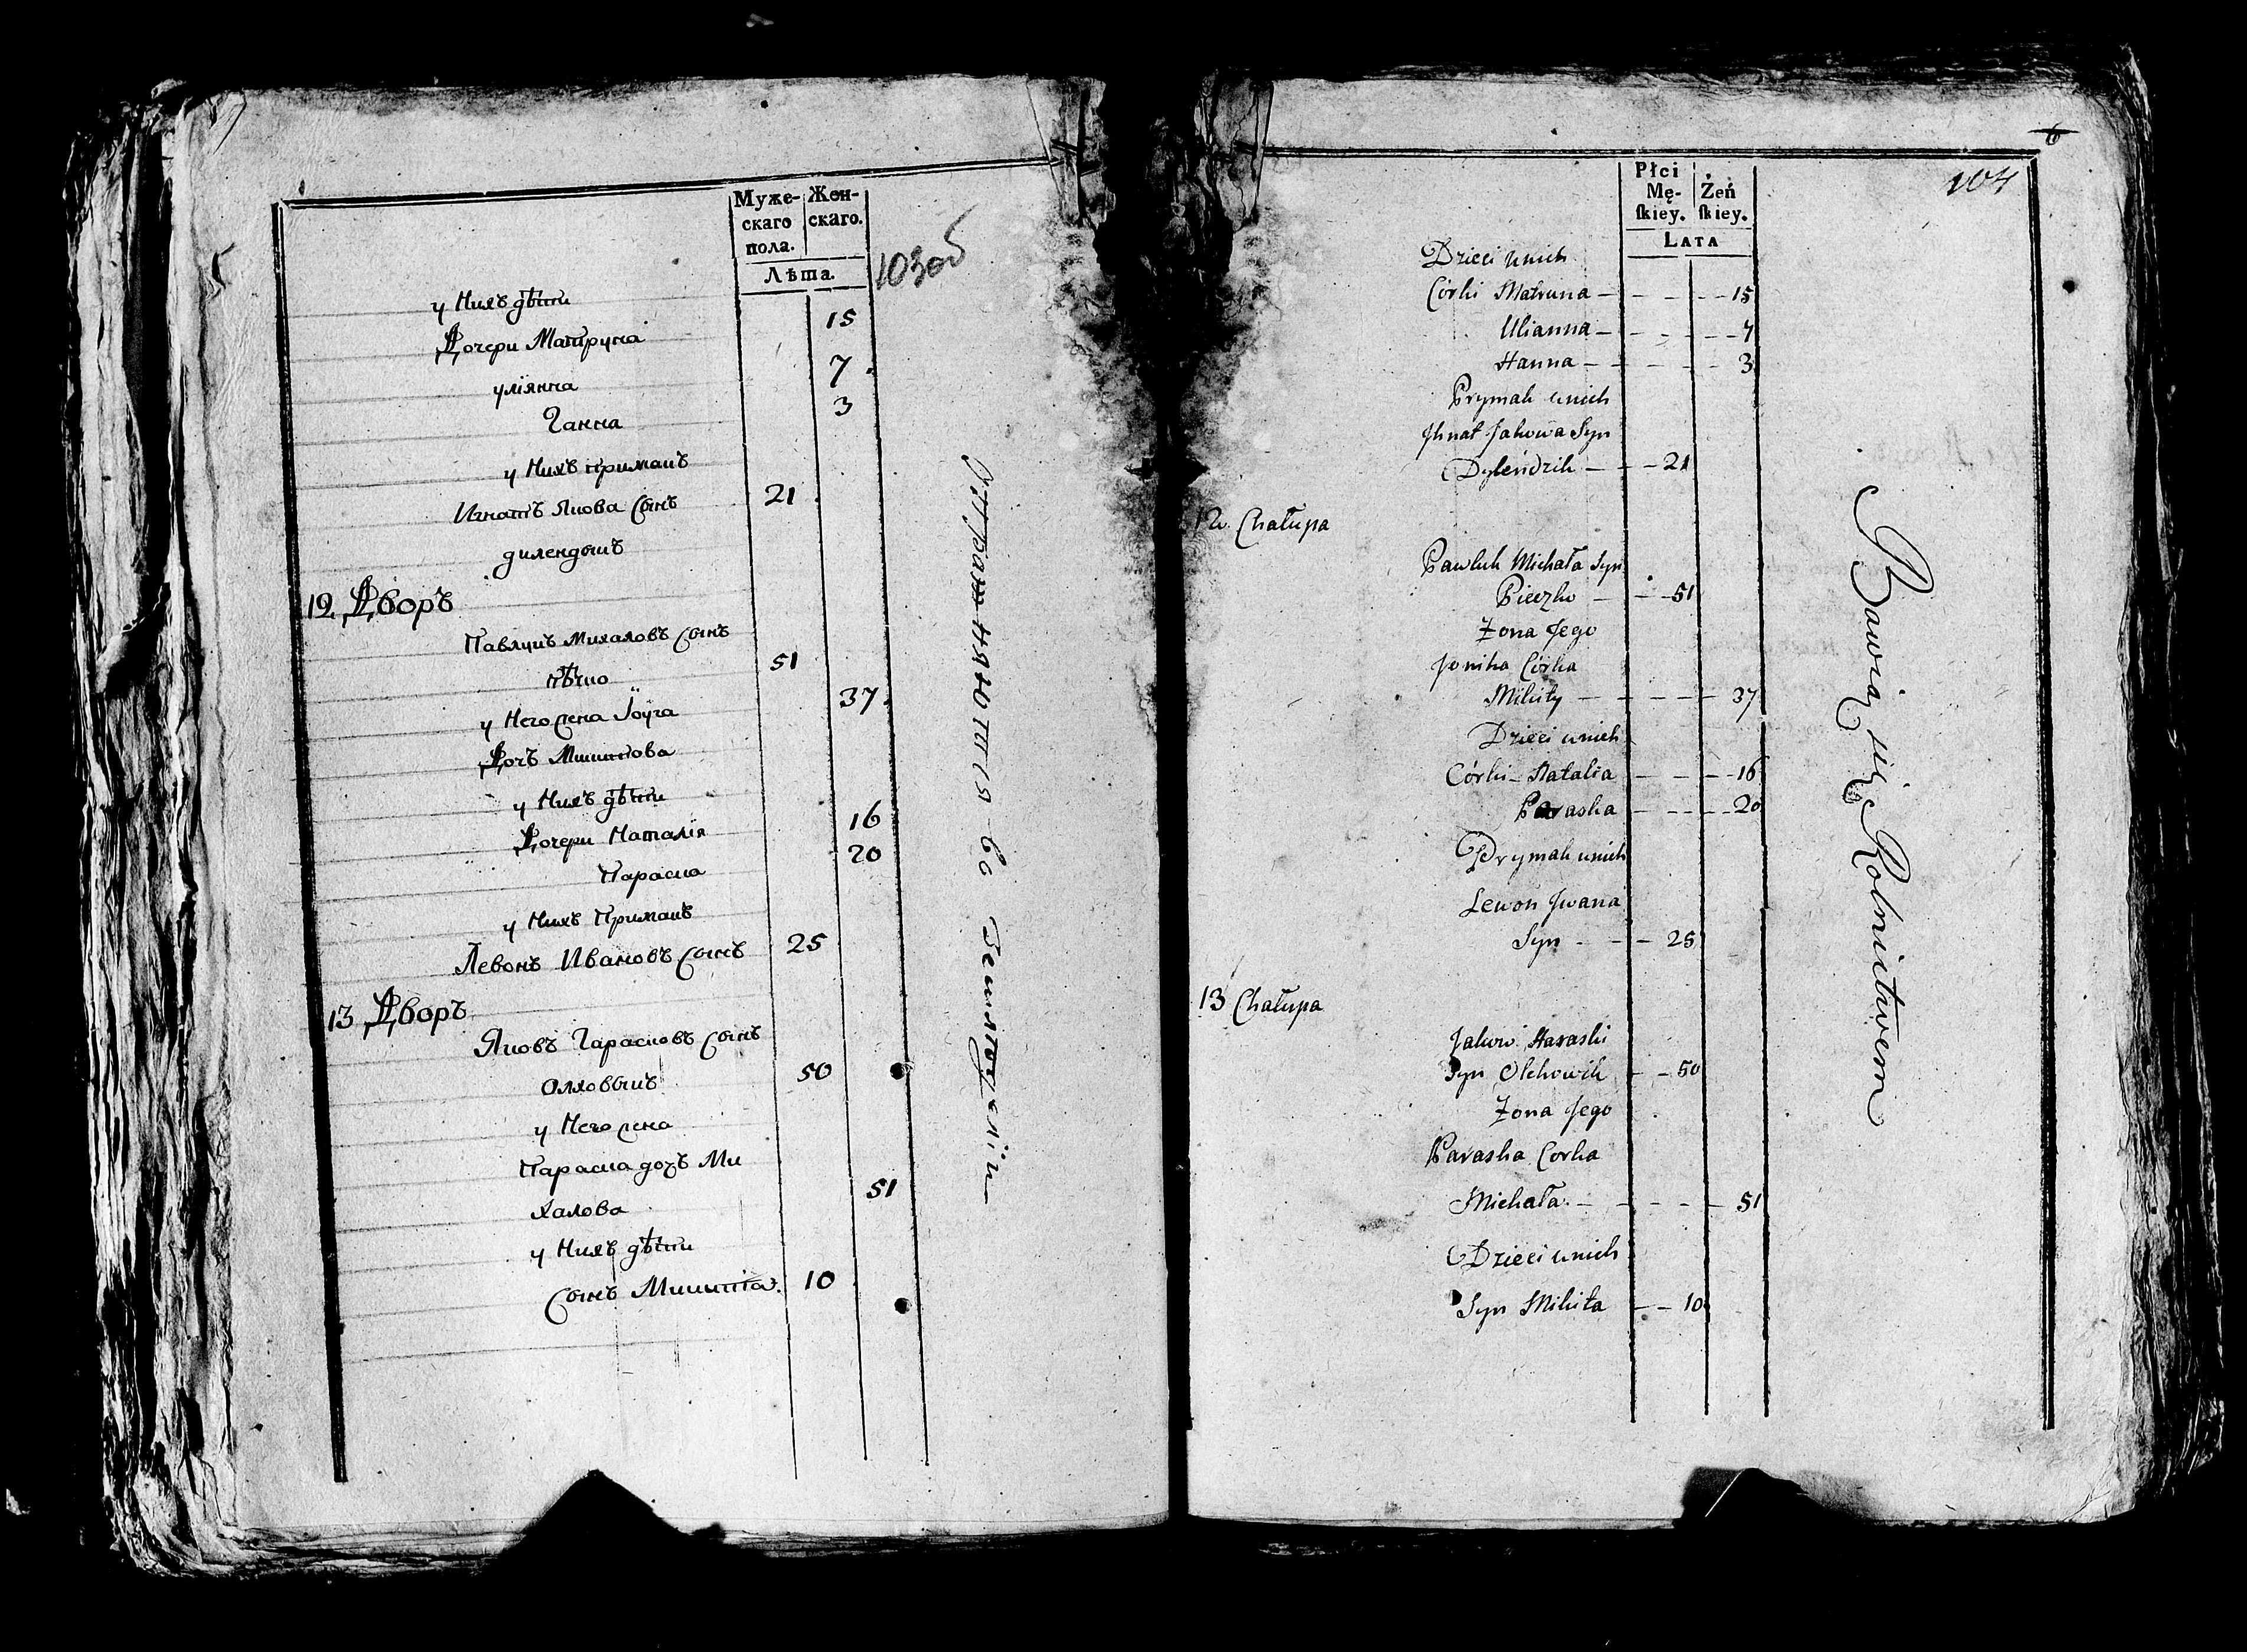 Муже-
скаго
пола.
Жен-
скаго.
Лѣта.
103об
у Нихъ дѣти
Дочери Матруна 15
уліянна 7
Ганна 3
у Нихъ примакъ
Игнатъ Якова Сынъ 21
дилендзикъ
12. Дворъ
Павлукъ Михаловъ Сынъ
пѣчко 51
у Него жена 37
Дочь Микитова
у Нихъ дѣти
Дочери Наталія 16
Параска 20
у Нихъ Примакъ
Левонъ Ивановъ Сынъ 25
13 Дворъ
Яковъ Гарасковъ Сынъ
Олховикъ 50
у Него жена
Параска дочь Ми
халова 51
у Нихъ дѣти
Сынъ Микита 10
Упражняются въ Земледелiи
6
104
Płci
Mę-
skiey.
Żeń
skiey.
LATA
Dzieci unich
Córki Matruna 15
Ulianna 7
Hanna 3
Prymak unich
Jhnat Jakowa Syn
Dylendzik 21
12 Chałupa
Pawluk Michała Syn
Pieczko 51
Żona Jego
Córka
Mikity 37
Dzieci unich
Córki Natalia 16
Paraska 20
Prymak unich
Lewon Jwana
Syn 25
13 Chałupa
Jakow Haraski
Syn Olchowik 50
Żona Jego
Paraska Corka
Michała 51
Dzieci unich
Syn Mikita 10
Bawią się Rolnictwem